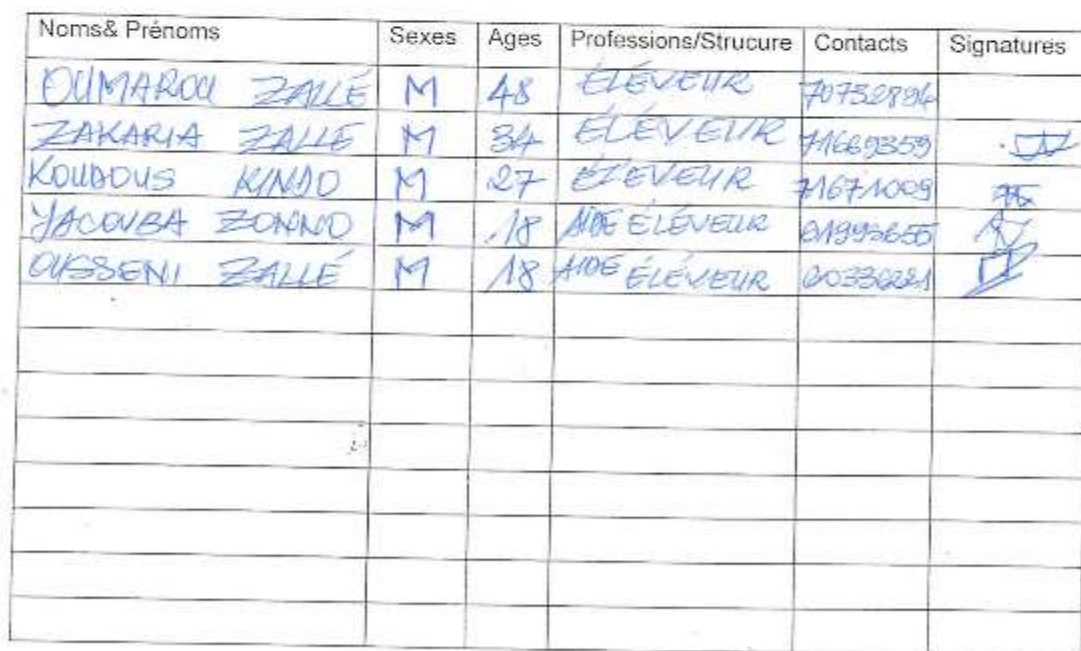 Noms& Prénoms Sexes Ages Professions/Strucure Contacts Signatures
OUMAROU ZALLÉ M 48 ÉLÉVEUR 70732894
ZAKARIA ZALLE M 34 ELÉVEUR 71669359
KOUDOUS KINDO M 27 ELEVEUR 71671009
YACOUBA ZONNO M 18 AIDE ÉLÉVEUR
OUSSENI ZALLÉ M 18 AIDE ÉLÉVEUR